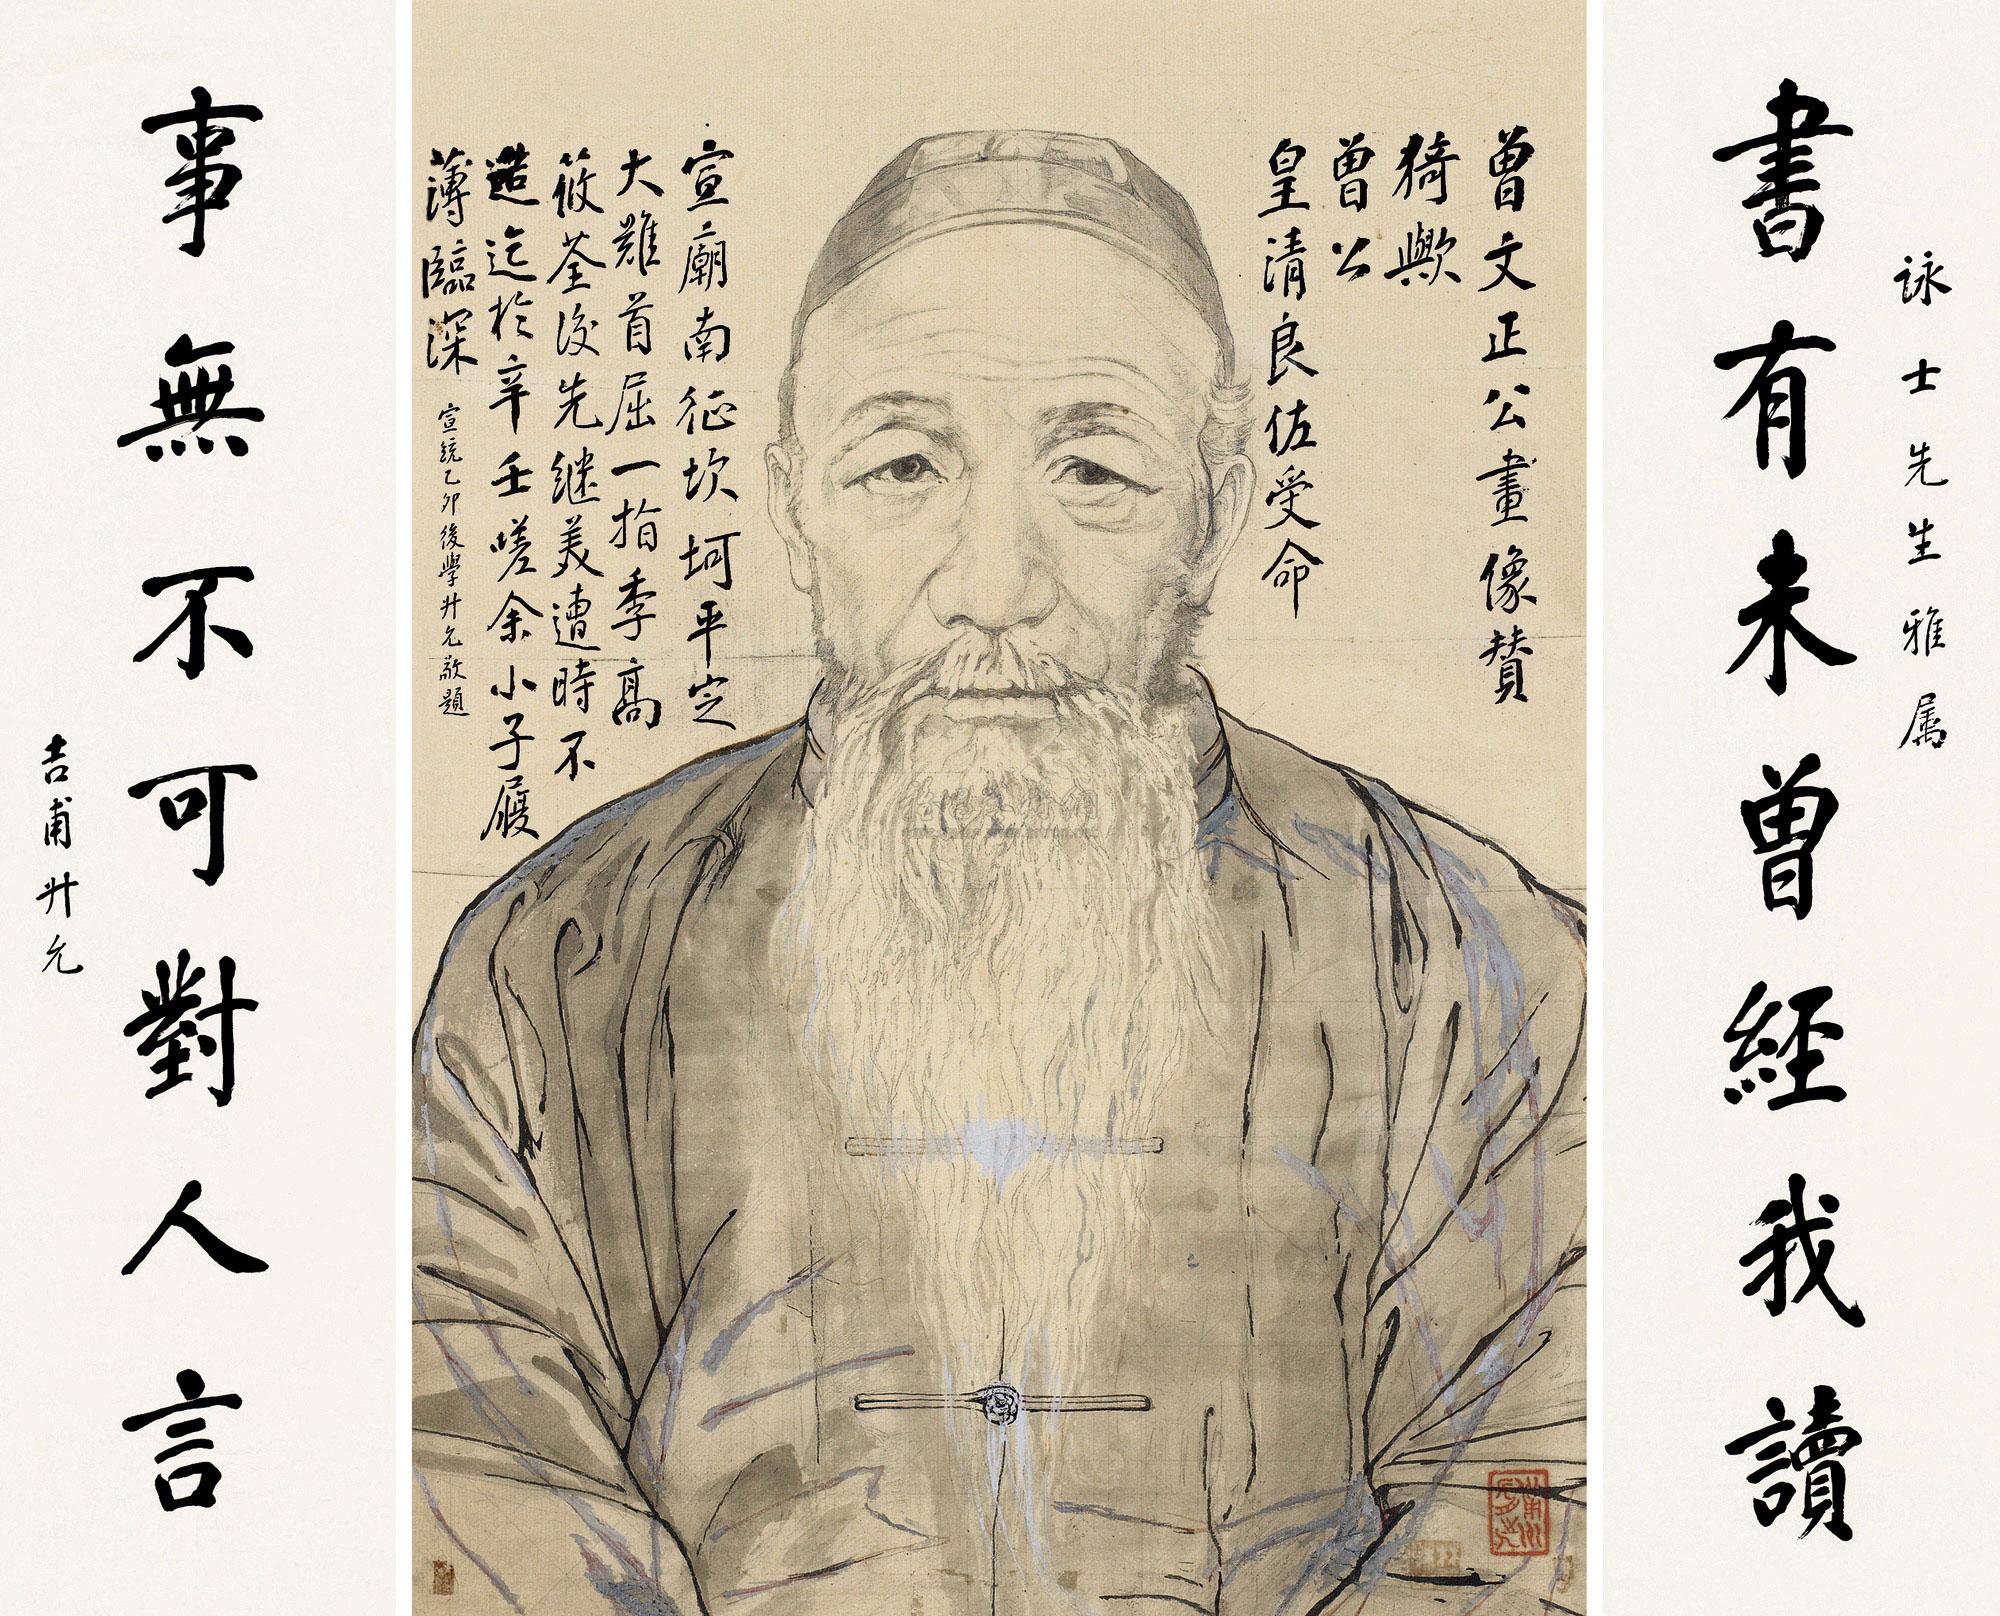 詠士先生雅属
書有未曾經我讀
曾文正公畫像賛
猗歟
曾公
皇清良佐受命
宣廟南征坎坷平定
大難首屈一指季高
筱荃後先継美遭時不
造迄於辛壬嗟余小子履
薄臨深
宣統乙卯後學升允敬題
事無不可對人言
吉甫升允